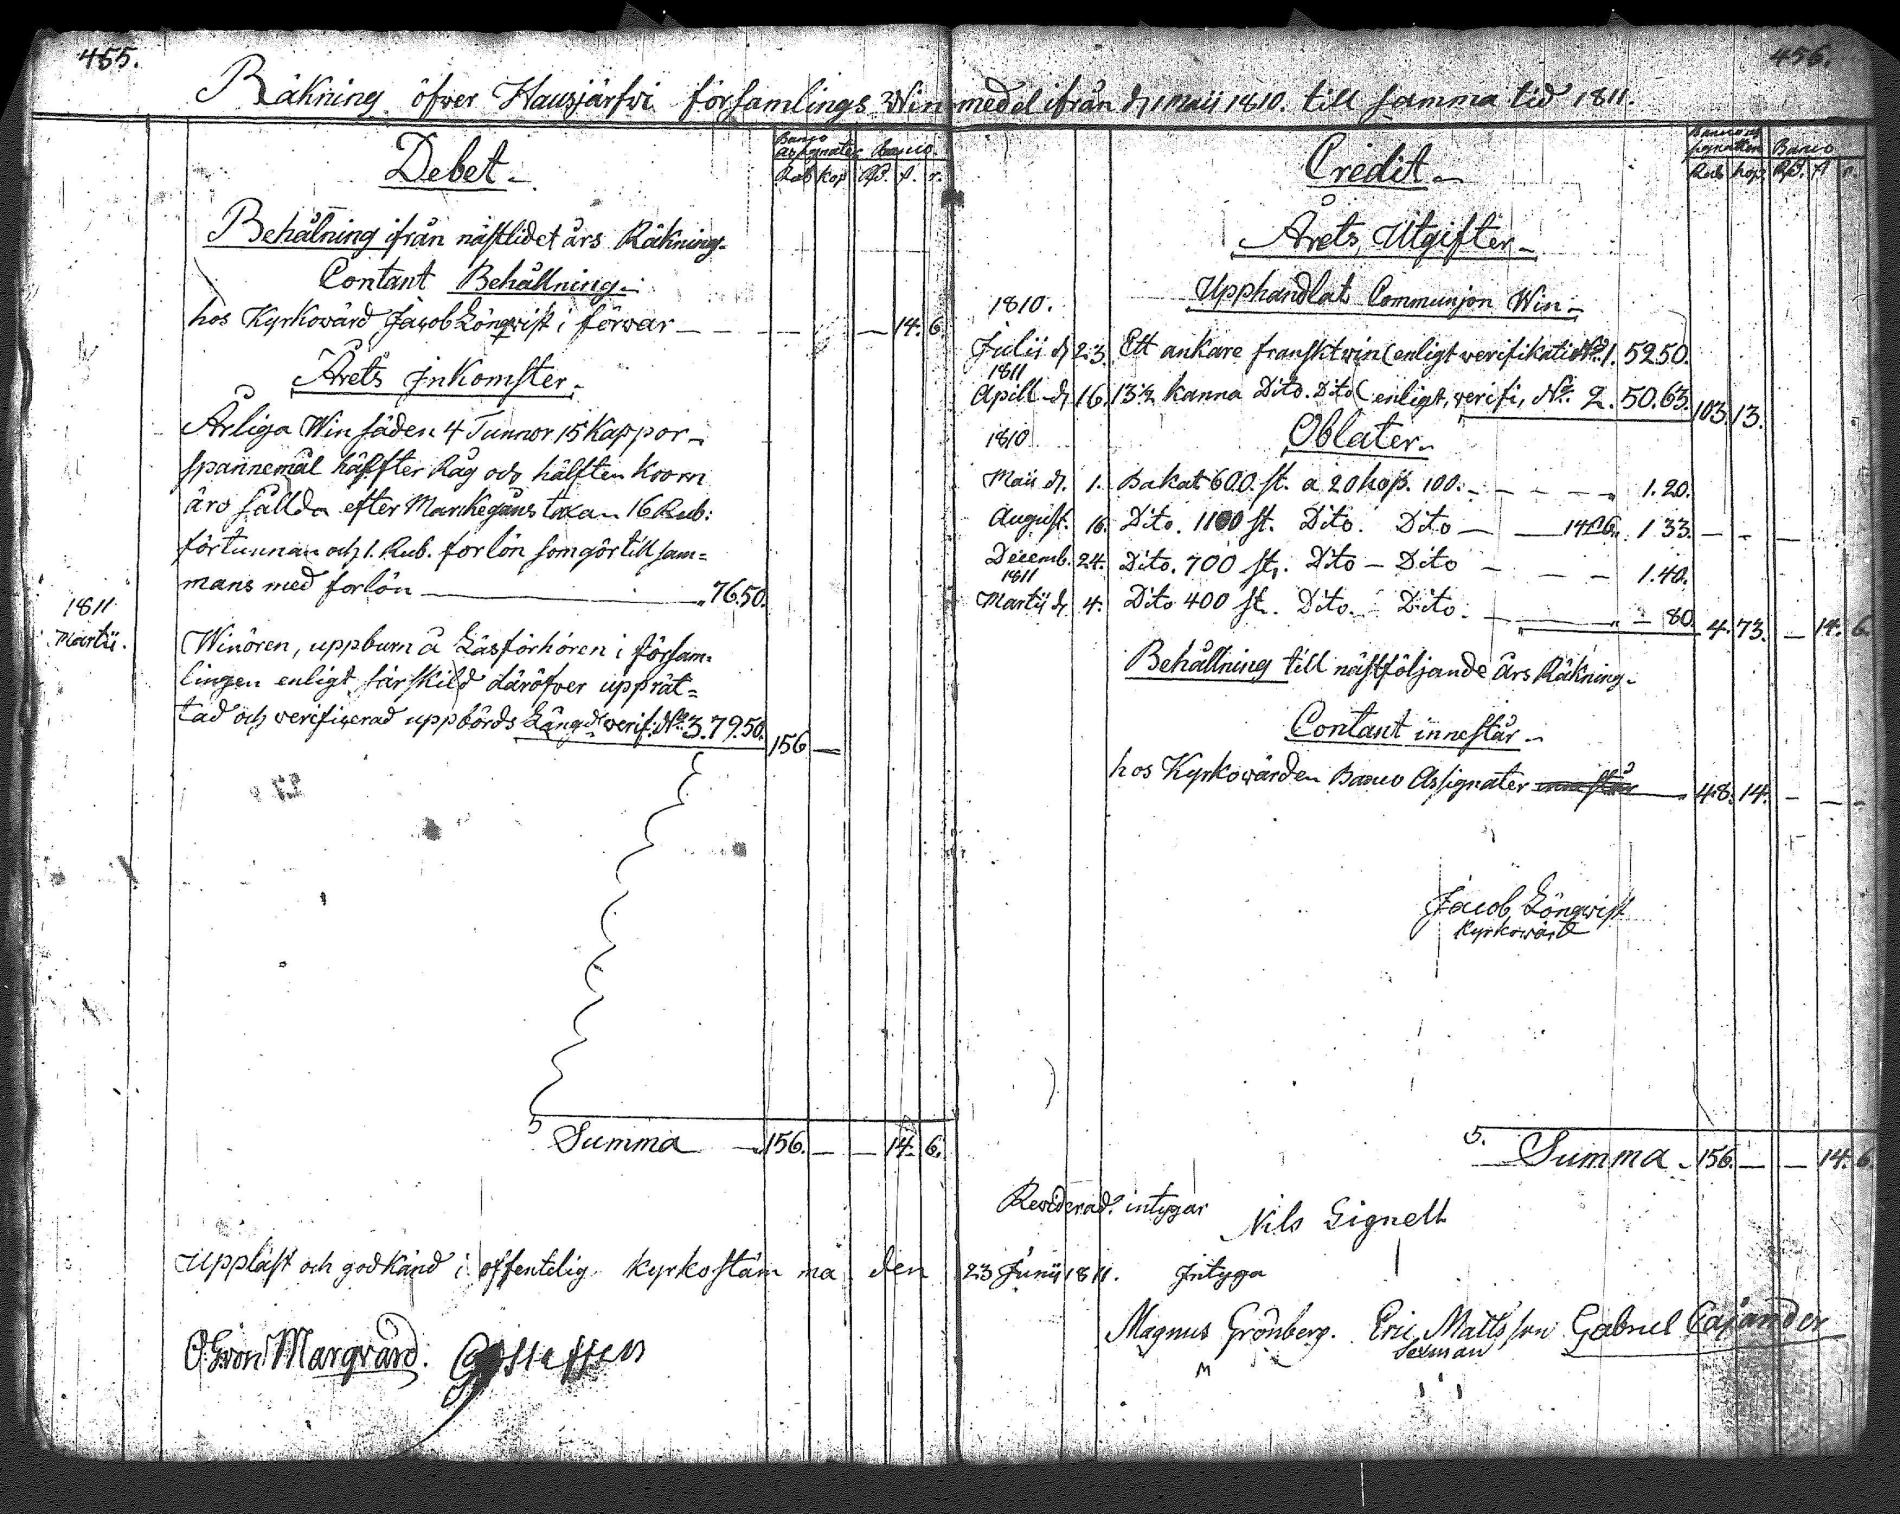 455.
456.
Räkning öfver Hausjärfvi församlings Winmedel ifrån d 1 Maij 1810. till samma tid 1811.
Debet
Banco assignater Banco.
Rub kop Rd. s. r.
Behålning ifrån nästlidet års Räkning.
Contant Behållning.
hos Kyrkovärd Jacob Lönqvist i förvar — — — — 14. 6.
Årets Inkomster.
Årliga Winsäden 4 Tunnor 15 Kappor
spannemål hälfften Råg och hälften Koorn
äro sållda efter Markegångs taxan 16 Rub:
för tunnan och 1. Rub. forlön som gör till sam=
mans med forlön — 76.50.
1811
Martii.
Winören, uppburn å Läsförhören i försam=
lingen enligt särskild däröfver upprät=
tad och verificerad uppbörds Längd verif: No 3. 79.50. 156 —
Summa — 156. — — 14. 6.
Credit
Banco assignatier Banco
Rub kop Rd. s r.
Årets Utgifter
Upphandlat Communion Win
1810.
Julii d 23 Ett ankare franskt win (enligt verifikation No 1. 52.50.
1811
Apill d 16. 13½ kanna Dito. Dito (enligt, verifi, No. 2. 50.63. 103. 13.
1810 Oblater
Maii d. 1. Bakat 600. st. a 20 kop. 100. — — — — 1.20.
August. 16. Dito. 1100 st. Dito. Dito — — 14 s 6 r. 1.33. — — —
Decemb. 24. Dito. 700 st. Dito — Dito — — — 1.40.
1811
Martii d 4. Dito 400 st. Dito. Dito. — — 80. 4. 73. — 14. 6
Behållning till nästföljande års Räkning.
Contant innestår
hos Kyrkovärden Banco Assignater — 48. 14. — — —
Jacob Lönqvist
Kyrkovärd
Summa 156. — — 14. 6
Reviderad. intygar
Nils Lignell
Uppläst och godkänd i offentelig kyrkostämma den 23 Junii 1811. Intyga
Margvard.
Magnus Grönberg. Eric Mattsson Gabriel Cajander
Sexman